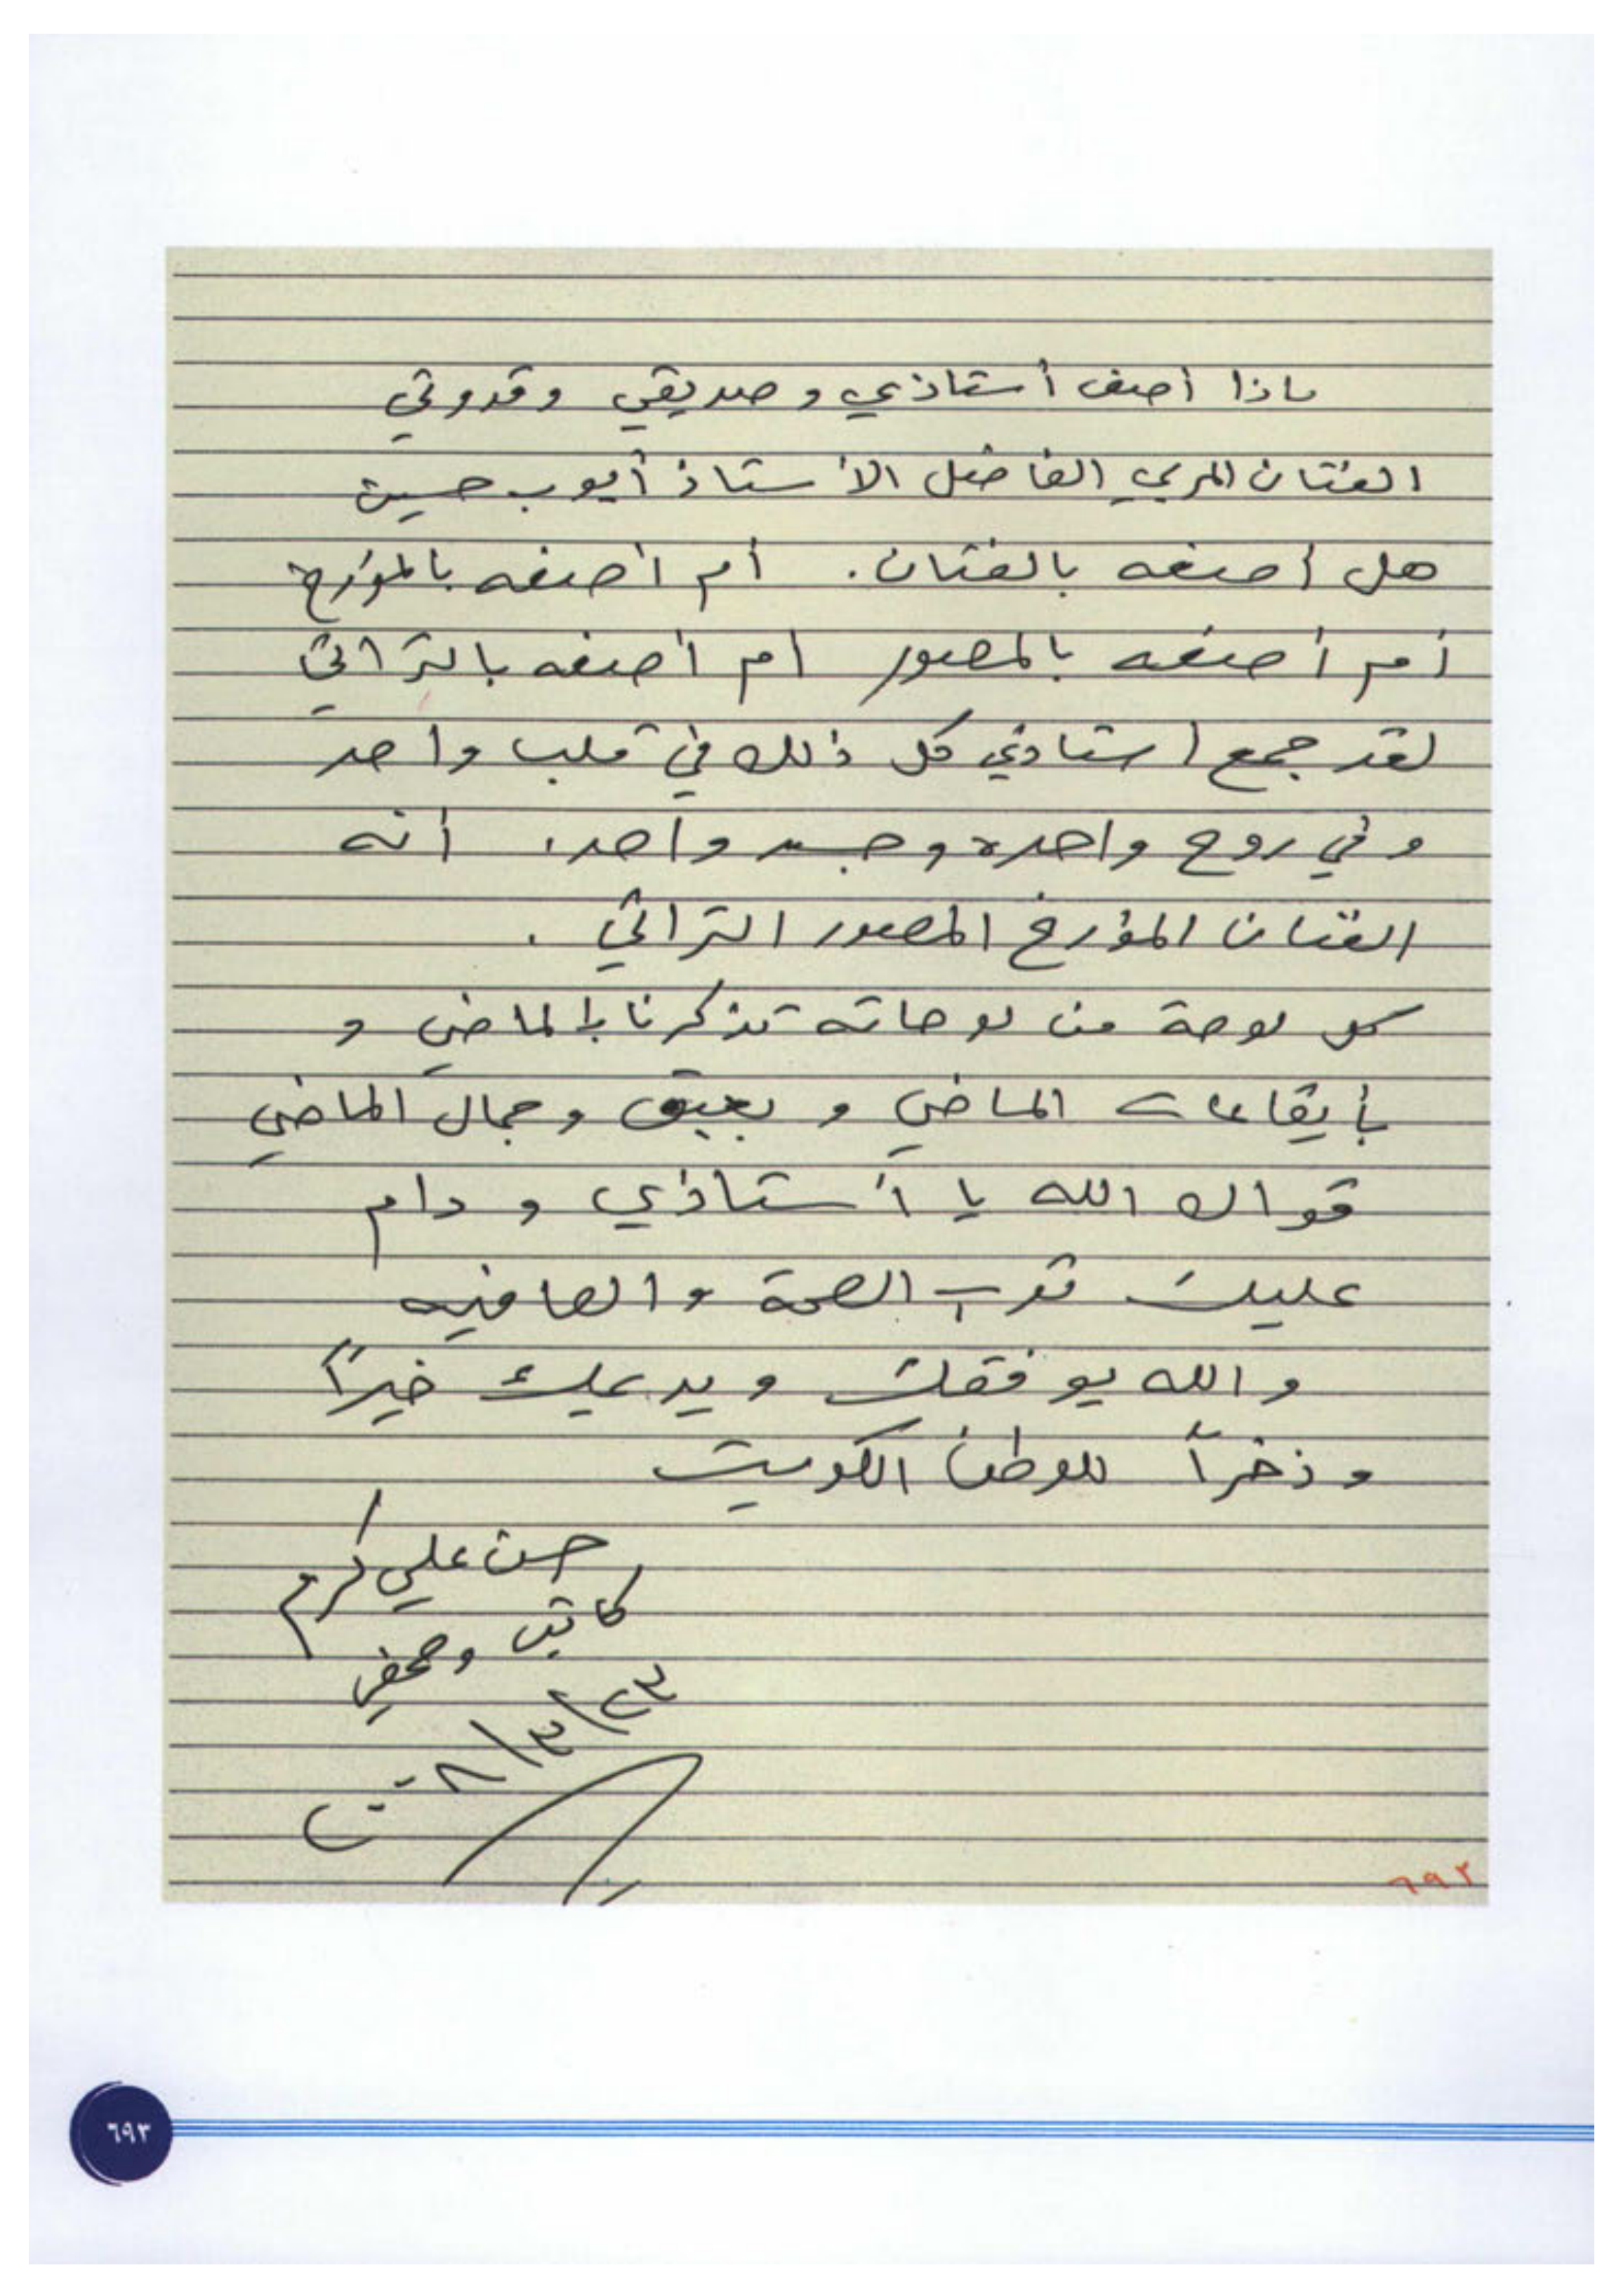 ماذا أصف أستاذي و صديقي وقدوتي
الفنان المربي الفاضل الأستاذ أيوب حسين
هل أصفه بالفنان. أم أصفه بالمؤرخ
أم أصفه بالمصور أم أصفه بالتراثي
لقد جمع استاذي كل ذلك في قلب واحد
وفي روح واحده وجسد واحد. أنه
الفنان المؤرخ المصور التراثي .
كل لوحة من لوحاته تذكرنا بالماضي و
بأيقاعات الماضي و بعبق وجمال الماضي
قواك الله يا أستاذي و دام
عليك ثوب الصحة والعافيه
والله يوفقك ويديمك خيراً
وذخراً للوطن الكويت
حسن علي كرم
كاتب وصحفي
٢٣/٣/٢٠٠٨
٦٩٣
٦٩٣